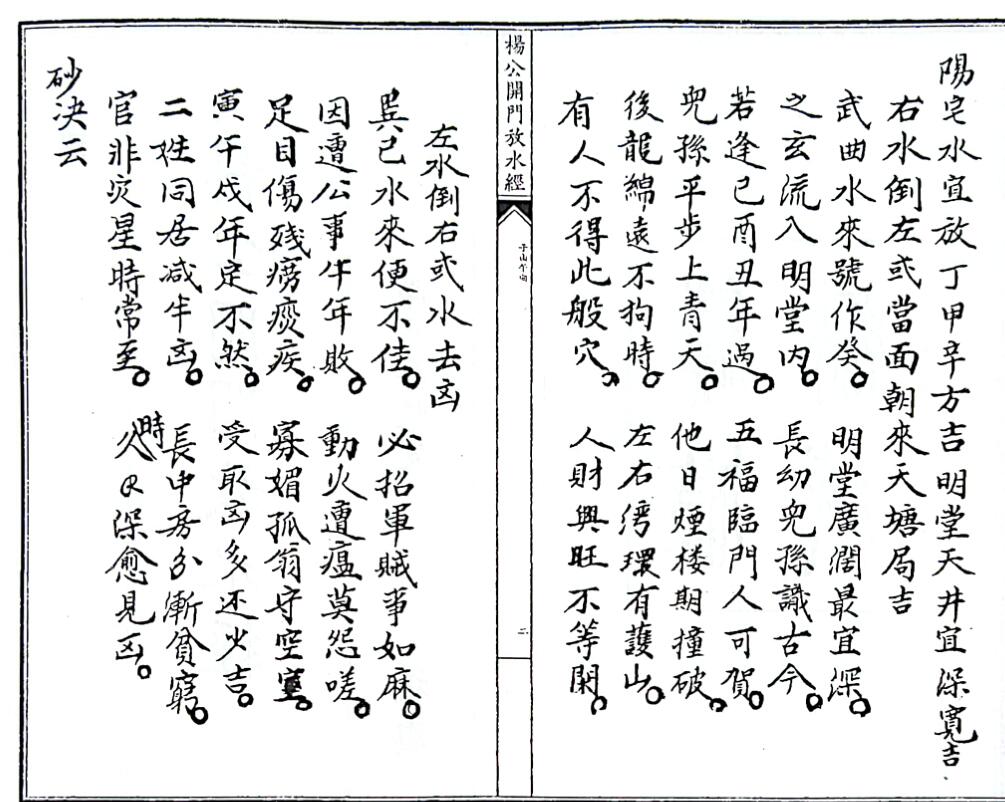 陽宅水宜放丁甲辛方吉明堂天井宜深寬吉
右水倒左或當面朝來天塘局吉
武曲水來號作癸。明堂廣濶最宜深。
之玄流入明堂內。長幼兒孫識古今。
若逢巳酉丑年過。五福臨門人可賀。
兒孫平步上青天。他日煙楼期撞破。
後龍綿遠不狗時。左右湾環有護山。
有人不得此般穴。人財興旺不等閑。
楊公開門放水經
子山午向
二
左水倒右或水去凶
巽巳水來便不佳。必招軍賊事如麻。
因遭公事牛年敗。動火遭瘟莫怨嗟。
足目傷残痨痰疾。寡媚孤翁守空室。
寅午戌年定不然。受取凶多还少吉。
二姓同居减半凶。長中房分漸貧窮。
官非灾星時常至。久時深愈見凶。
砂决云